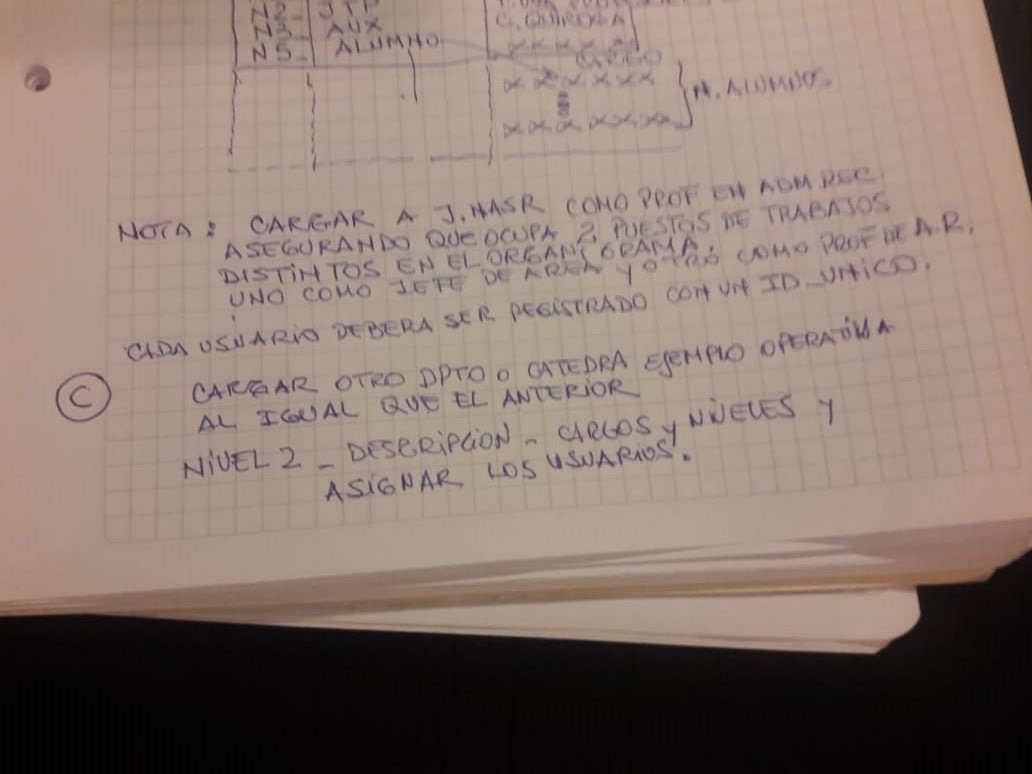 N2- JTP
C. QUIROGA
N3- AUX
N5- ALUMNO
x x x x x x
x x x x x x x
N. ALUMNOS
x x x x x x x
NOTA: CARGAR A J. NASR COMO PROF EN ADM REC.
ASEGURANDO QUE OCUPA 2 PUESTOS DE TRABAJOS
DISTINTOS EN EL ORGANIGRAMA.
UNO COMO JEFE DE AREA y OTRO COMO PROF DE A.R.
CADA USUARIO DEBERA SER REGISTRADO CON UN ID_UNICO.
C CARGAR OTRO DPTO O CATEDRA EJEMPLO OPERATIVA
AL IGUAL QUE EL ANTERIOR
NIVEL 2 - DESCRIPCION - CARGOS y NIVELES y
ASIGNAR LOS USUARIOS.